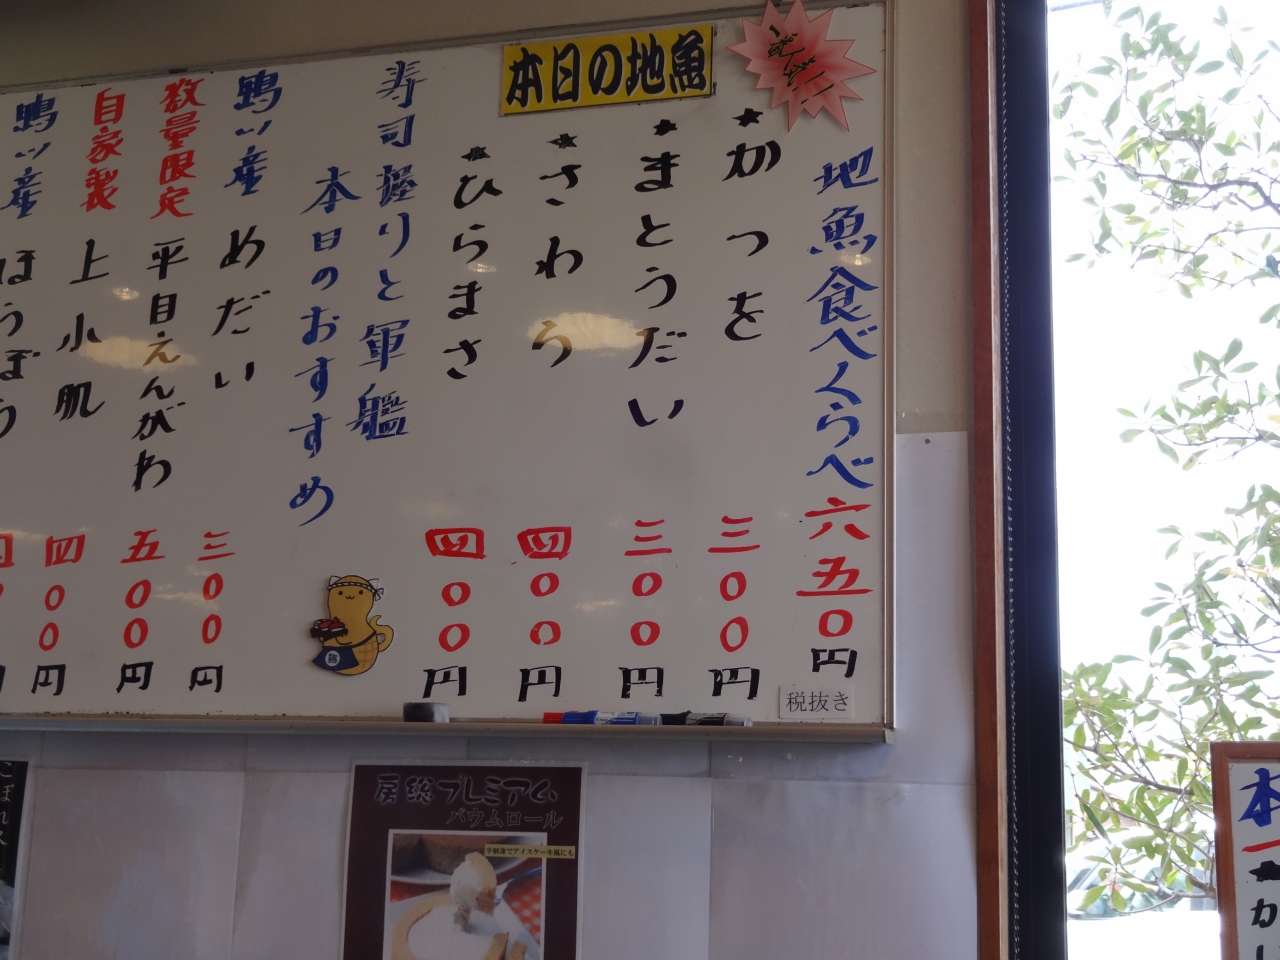 本日の地魚
地魚食べくらべ 六五〇円
税抜き
★かつを 三〇〇円
★まとうだい 三〇〇円
★さわら 四〇〇円
★ひらまさ 四〇〇円
寿司握りと軍艦
本日のおすすめ
鴨川産 めだい 三〇〇円
数量限定 平目えんがわ 五〇〇円
自家製 上小肌 四〇〇円
鴨川産 ほうぼう
房総プレミアム
バウムロール
半解凍でアイスケーキ風にも
こぼれ
本
★か